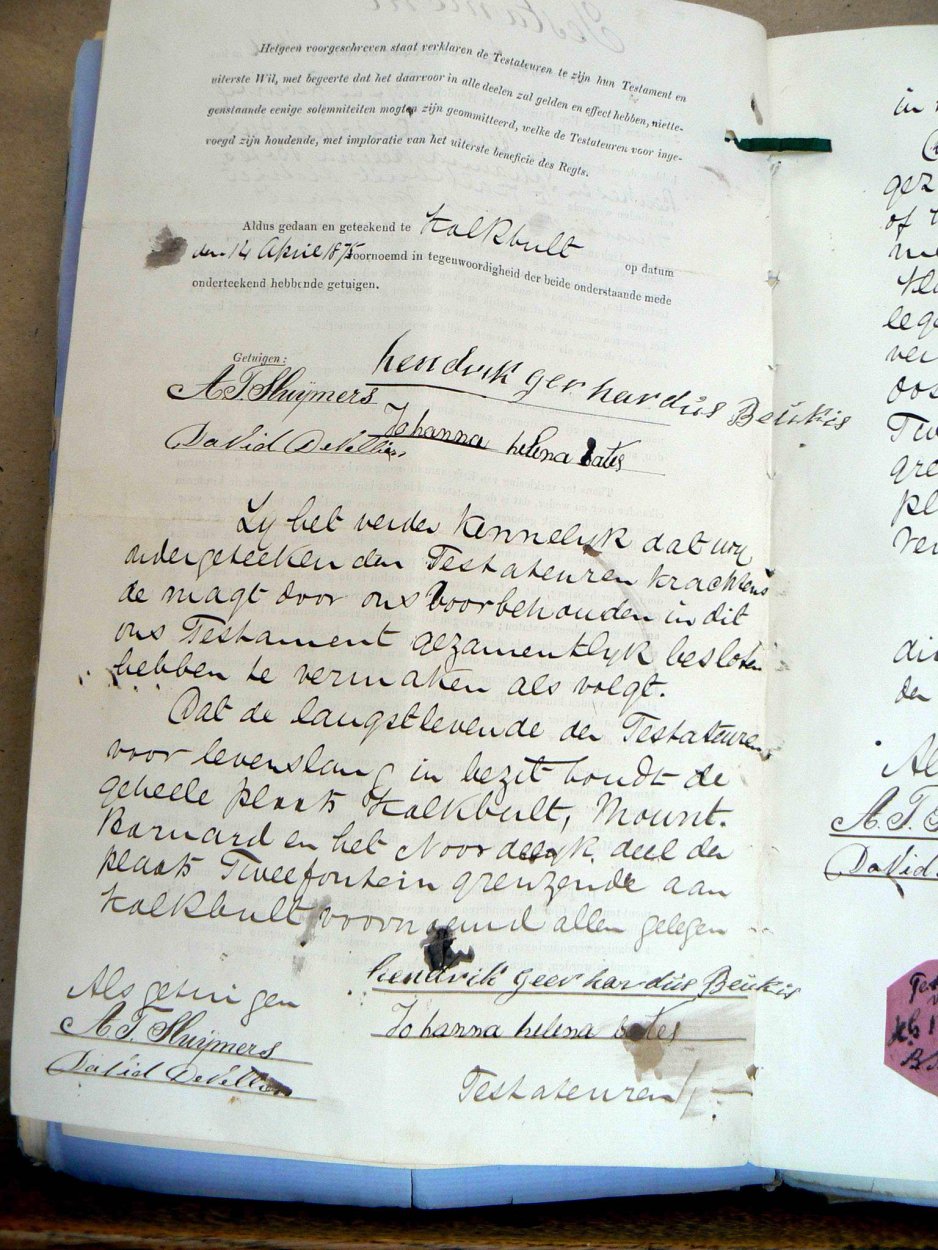 Hetgeen voorgeschreven staat verklaren de Testateuren te zijn hun Testament en
uiterste Wil, met begeerte dat het daarvoor in alle deelen zal gelden en effect hebben, niette-
genstaande eenige solemniteiten mogten zijn geommitteerd, welke de Testateuren voor inge-
voegd zijn houdende, met imploratie van het uiterste beneficie des Regts.
Aldus gedaan en geteekend te Kalkbult op datum
den 14 April 1875 voornoemd in tegenwoordigheid der beide onderstaande mede
onderteekend hebbende getuigen.
Getuigen:
hendrik ger hardus Beukis
A.T. Sluijmers
Johanna helena bates
David DeVilliers
Zy het verder kennelyk dat wy
ondergeteeken den Testateuren krachtens
de magt door ons voorbehouden in dit
ons Testament gezamentlyk besloten
hebben te vermaken als volgt.
Dat de langstlevende der Testateuren
voor levenslang in bezit houdt de
geheele plaats Kalkbult, Mount.
Barnard en het Noordelyk deel der
plaats Tweefontein grenzende aan
Kalkbult voornoemd allen gelegen
hendrik geer hardus Beukis
Als getuigen
A.T. Sluijmers
Johanna helena bates
David DeVilliers
Testateuren
in
gez
of
me
lege
ver
oos
Twe
gre
pl
ver
dit
der
Al
A.T. S
David